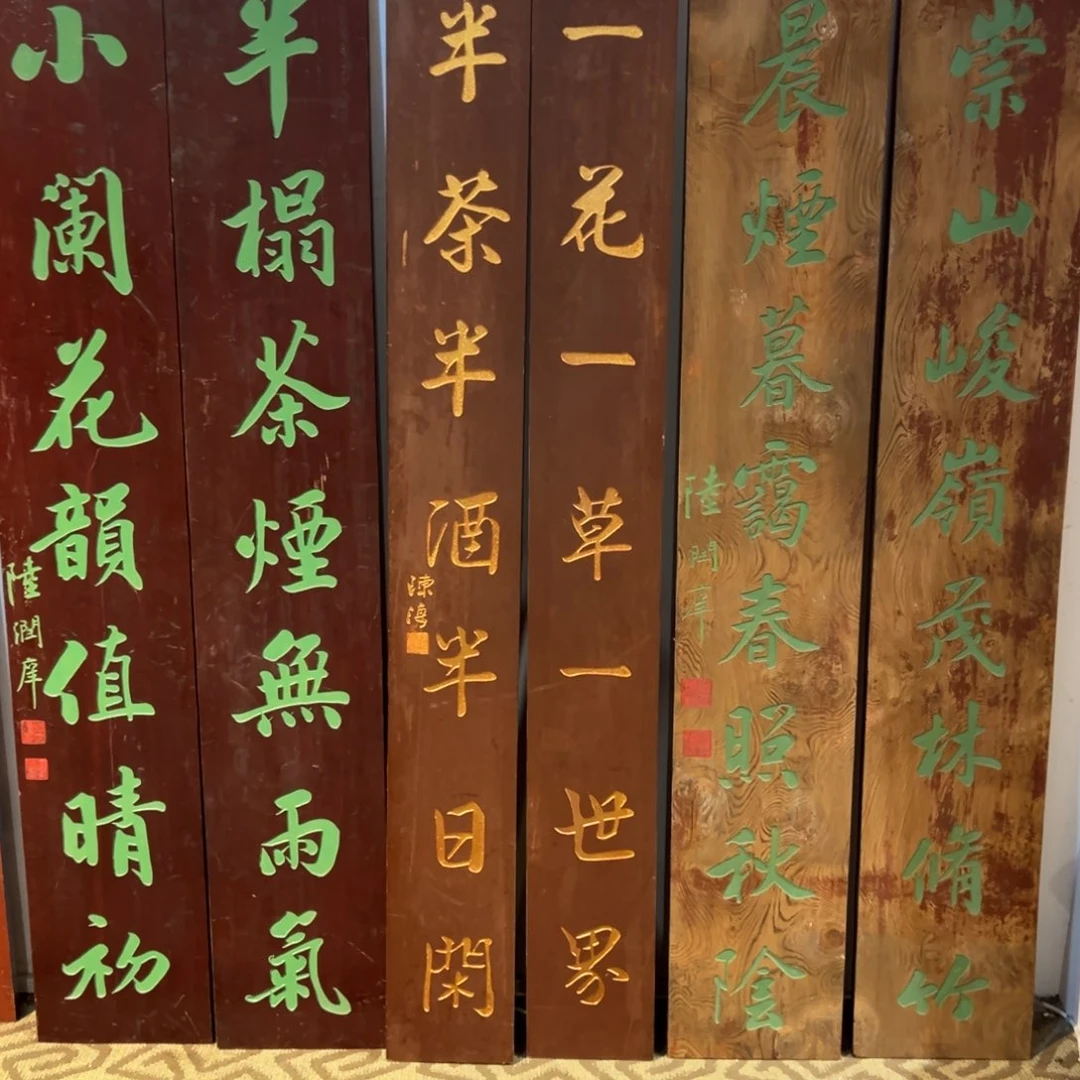 崇山峻嶺茂林脩竹
晨煙暮靄春照秋陰
陸潤庠
一花一草一世界
半茶半酒半日閑
半榻茶煙無雨氣
小闌花韻值晴初
陸潤庠